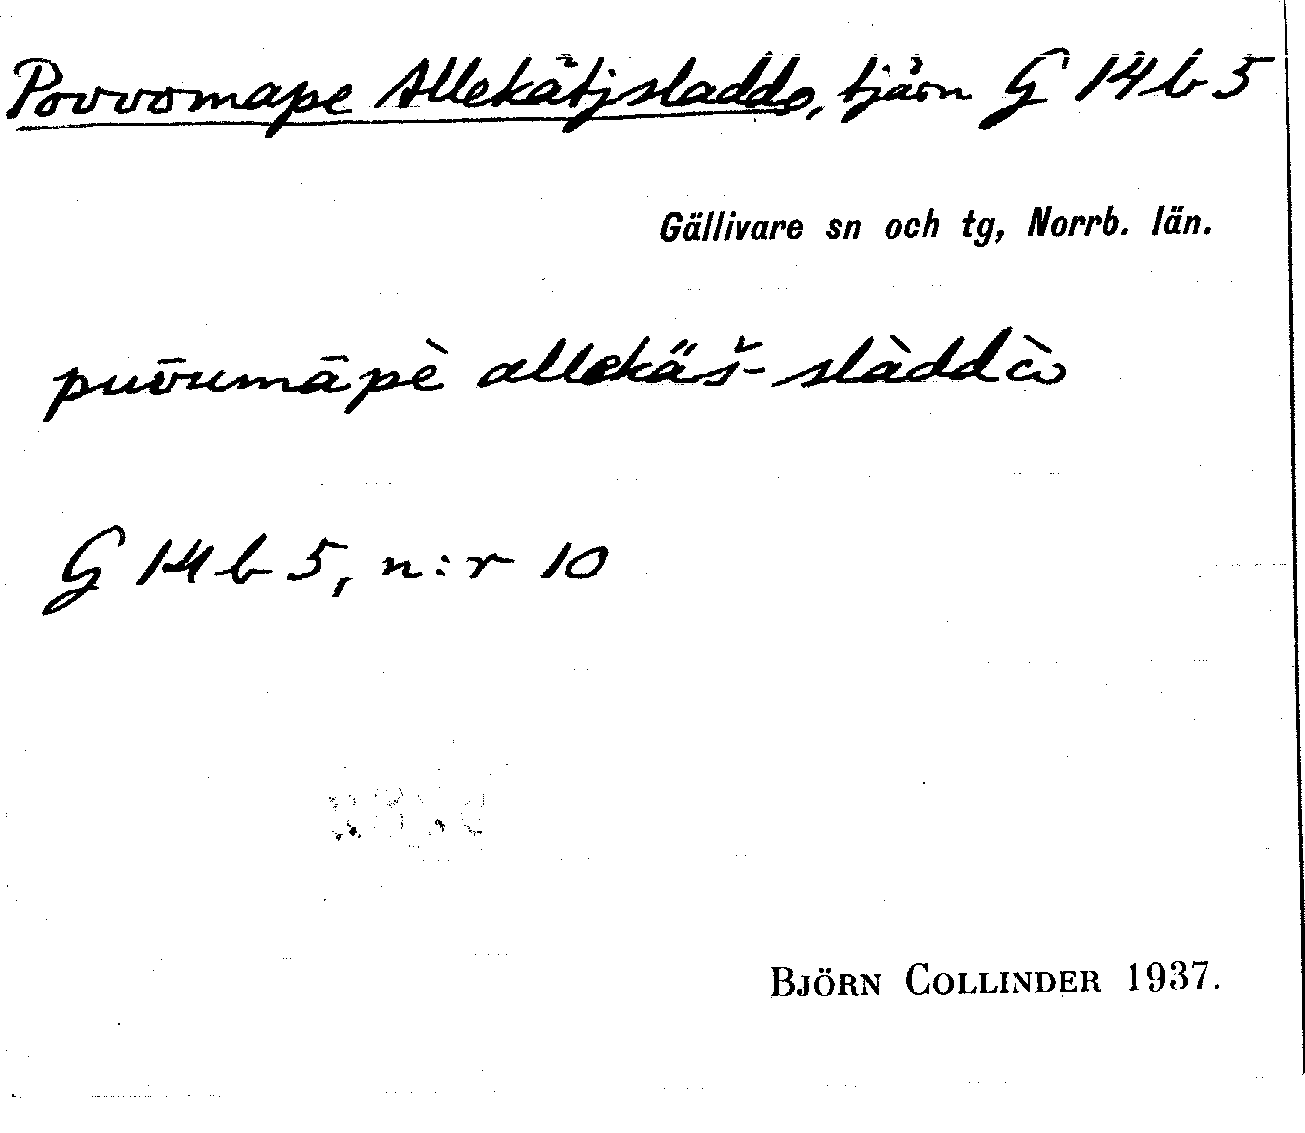 Povvomape Allekätjsladdo, tjärn G 14 b 5
Gällivare sn och tg, Norrb. län.
puv̄umāpè allekäš-slàddò
G 14 b 5, n:r 10
BJÖRN COLLINDER 1937.